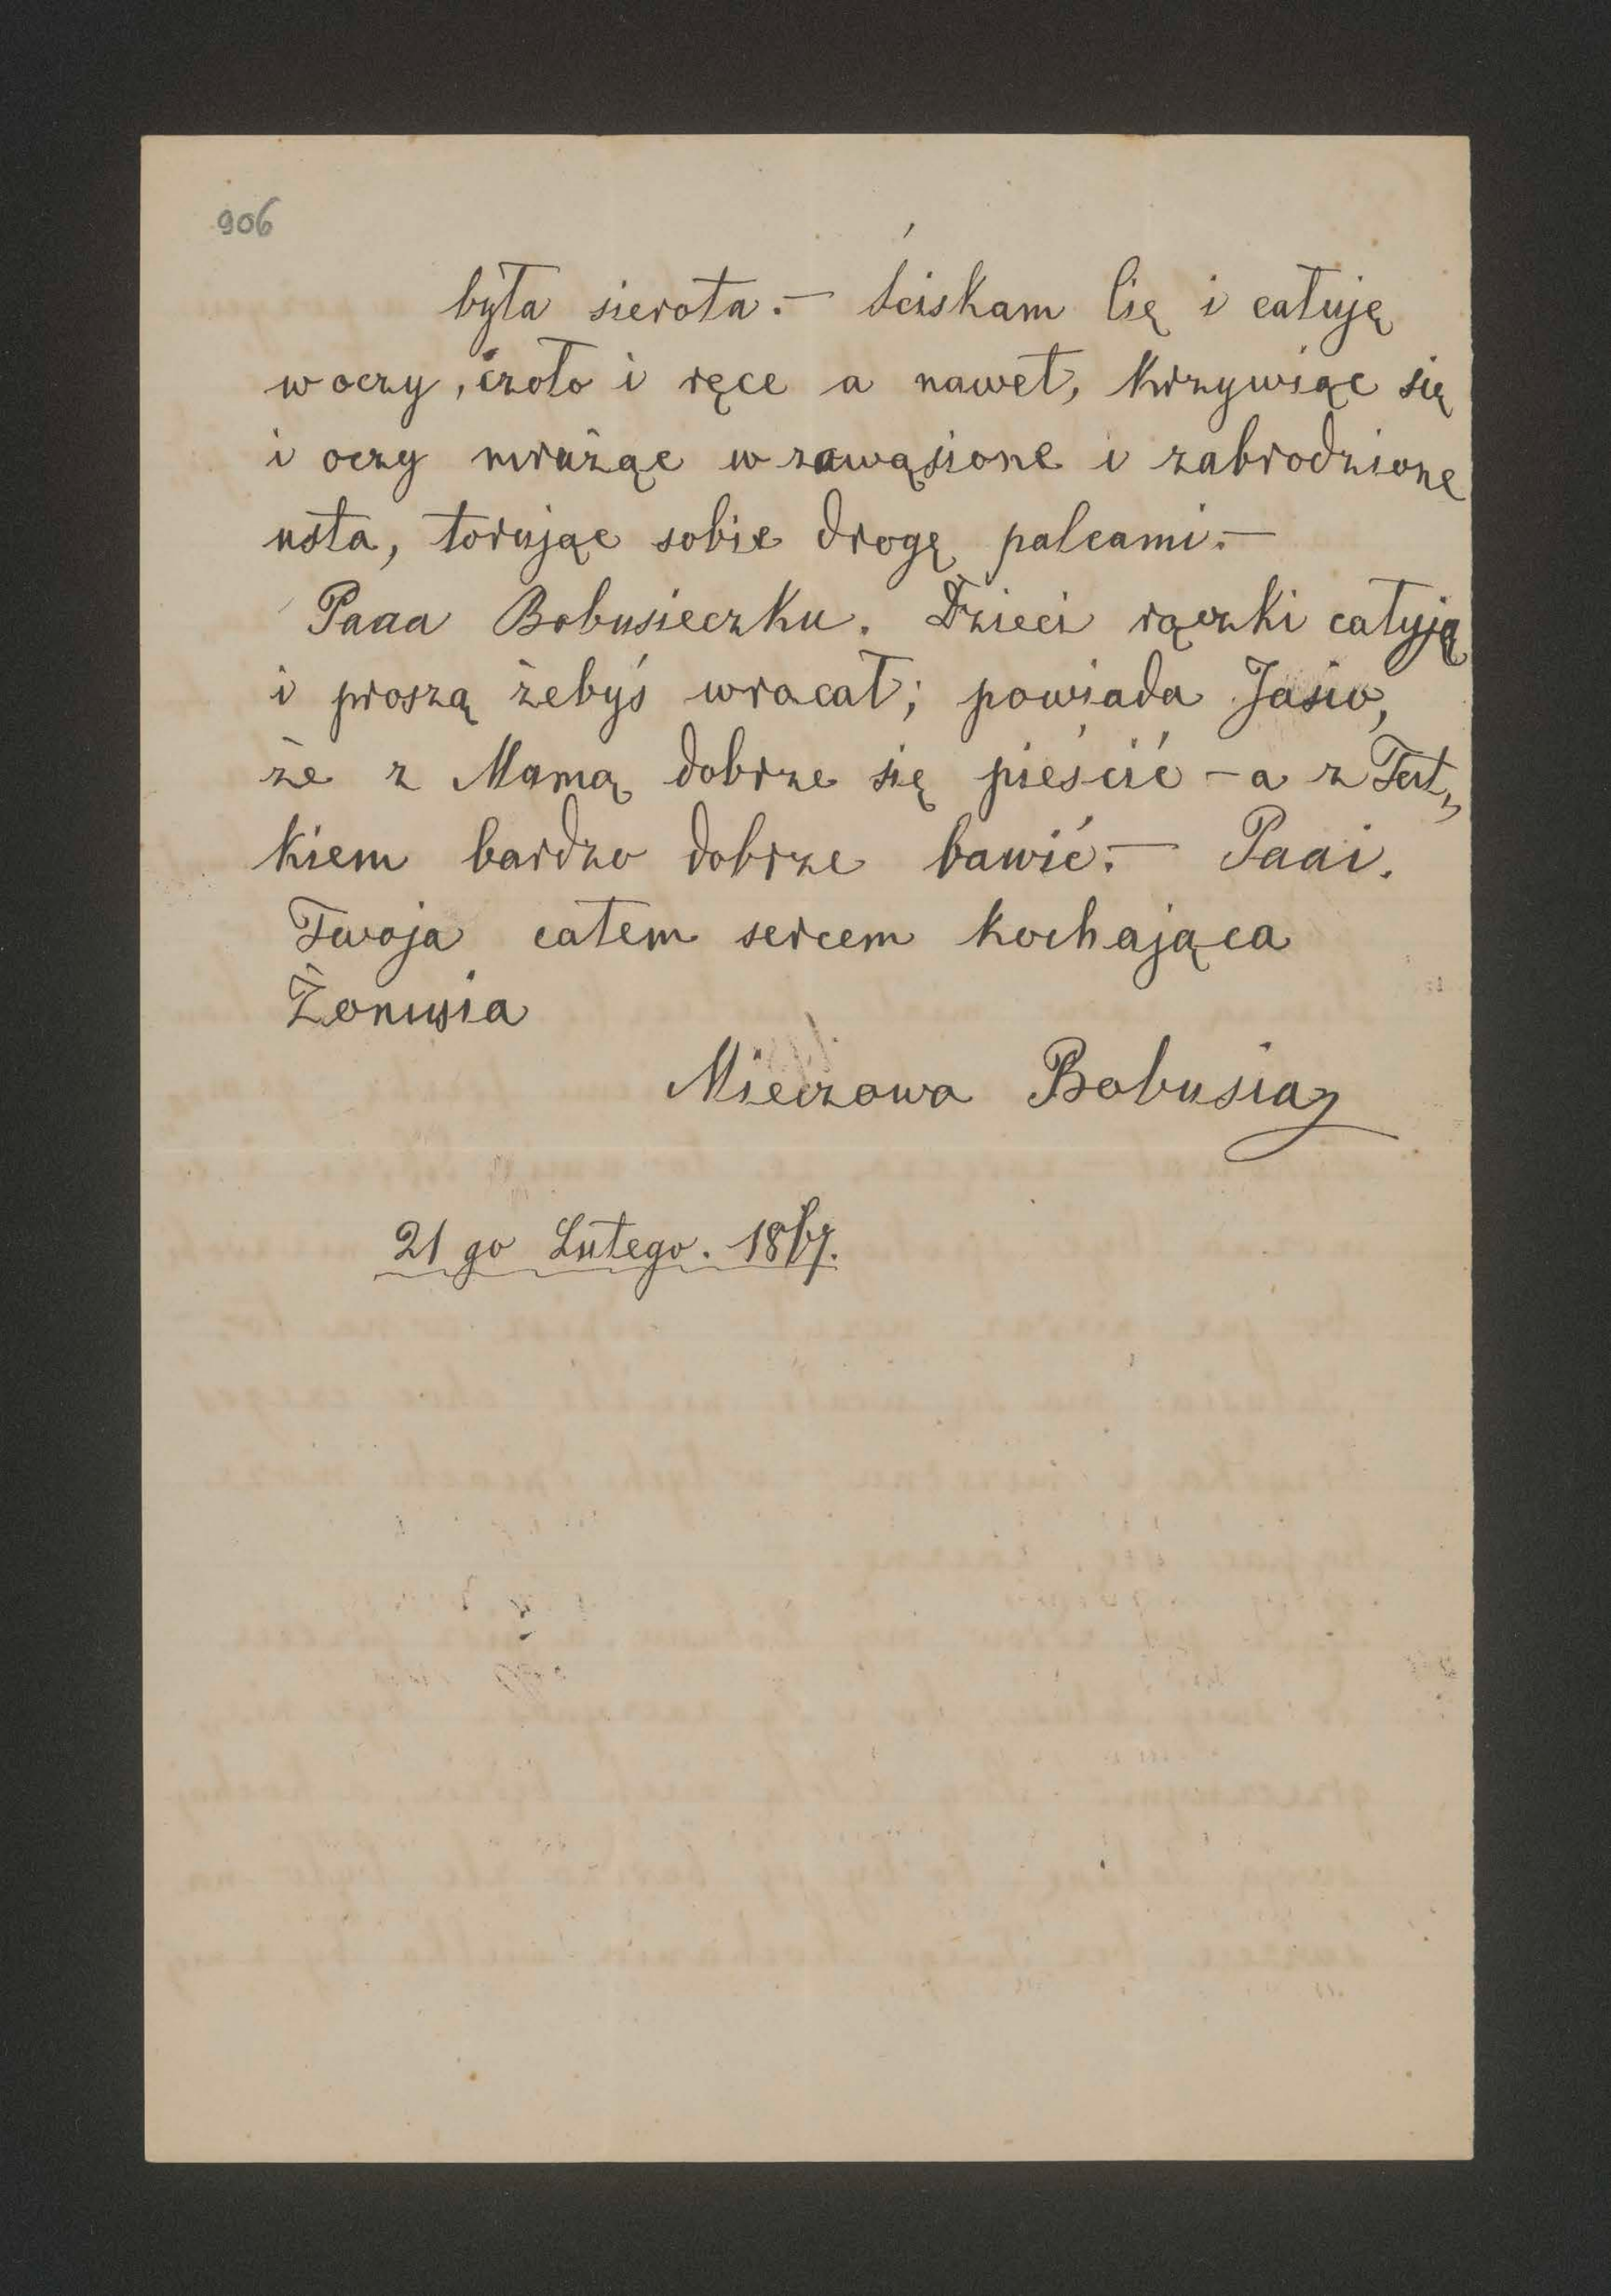 906
była sierota. — Ściskam Cię i całuję
w oczy, czoło i ręce a nawet, krzywiąc się
i oczy mrużąc w zawąsione i zabrodzione
usta, torując sobie drogę palcami. —
Paaa Bobusieczku. Dzieci rączki całują
i proszą żebyś wracał; powiada Jasio,
że z Mamą dobrze się pieścić — a z Tat„
kiem bardzo dobrze bawić. — Paai.
Twoja całem sercem kochająca
Żonusia
Mieczowa Bobusia
21 go Lutego.